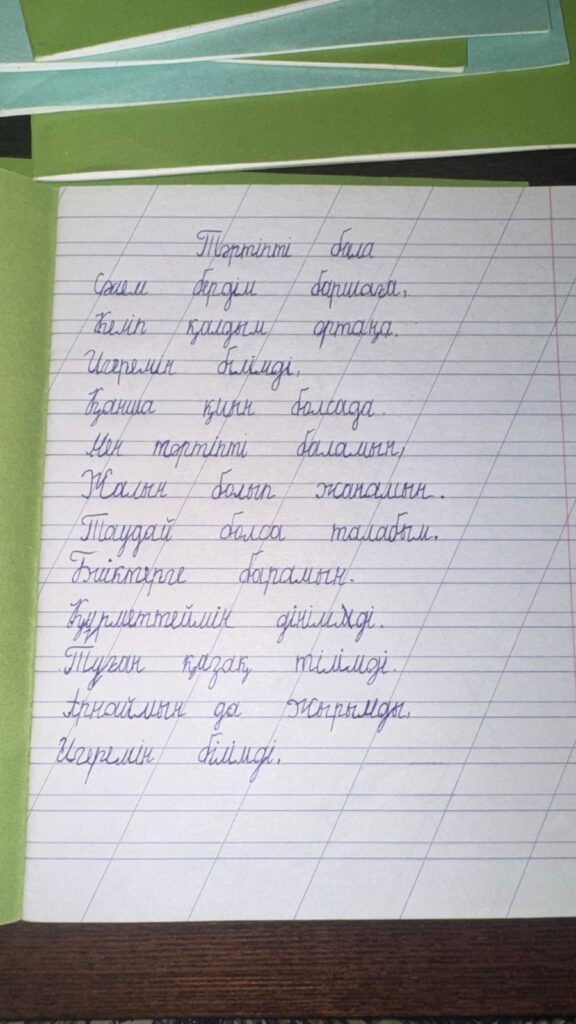 Тәртіпті бала
Сәлем бердім баршаға,
Келіп қалдым ортаңа.
Игеремін білімді,
Қанша қиын болсада.
Мен тәртіпті баламын,
Жалын болып жанамын.
Таудай болса талабым.
Биіктерге барамын.
Құрметтеймін дінімді.
Туған қазақ тілімді.
Арнаймын да Жырымды,
Игеремін білімді.